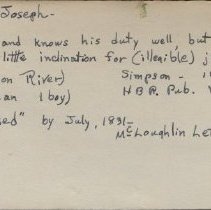 Joseph -
and knows his duty well, but
little inclination for (illegible) j
on River) Simpson -
an 1 boy) H B R. Pub. V
ed" by July, 1831-
McLoughlin Le